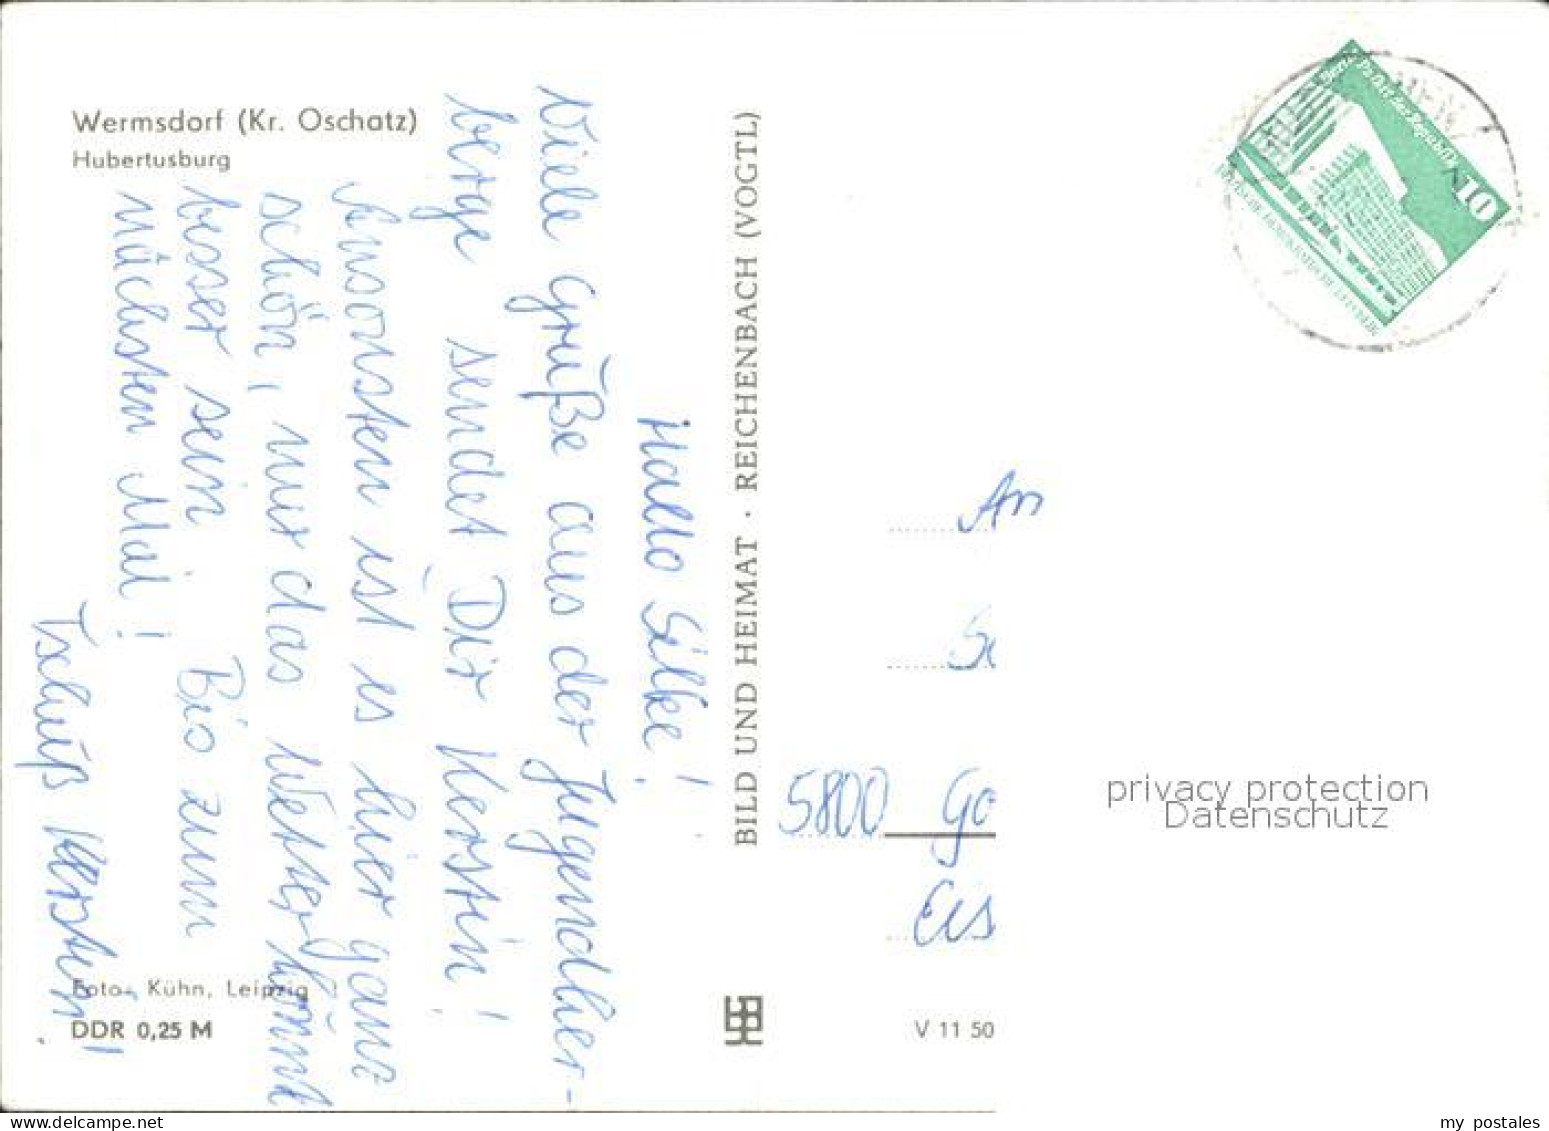 Wermsdorf (Kr. Oschatz)
Hubertusburg
Hallo Silke!
Viele Grüße aus der Jugendher-
berge sendet Dir Kerstin!
Ansonsten ist es hier ganz
schön, nur das Wetter könnt
besser sein Bis zum
nächsten Mal!
Tschüß Kerstin!
Foto: Kühn, Leipzig
DDR 0,25 M
BILD UND HEIMAT · REICHENBACH (VOGTL)
V 11 50
10
An
5800 Go
Eis
privacy protection
Datenschutz
my postales